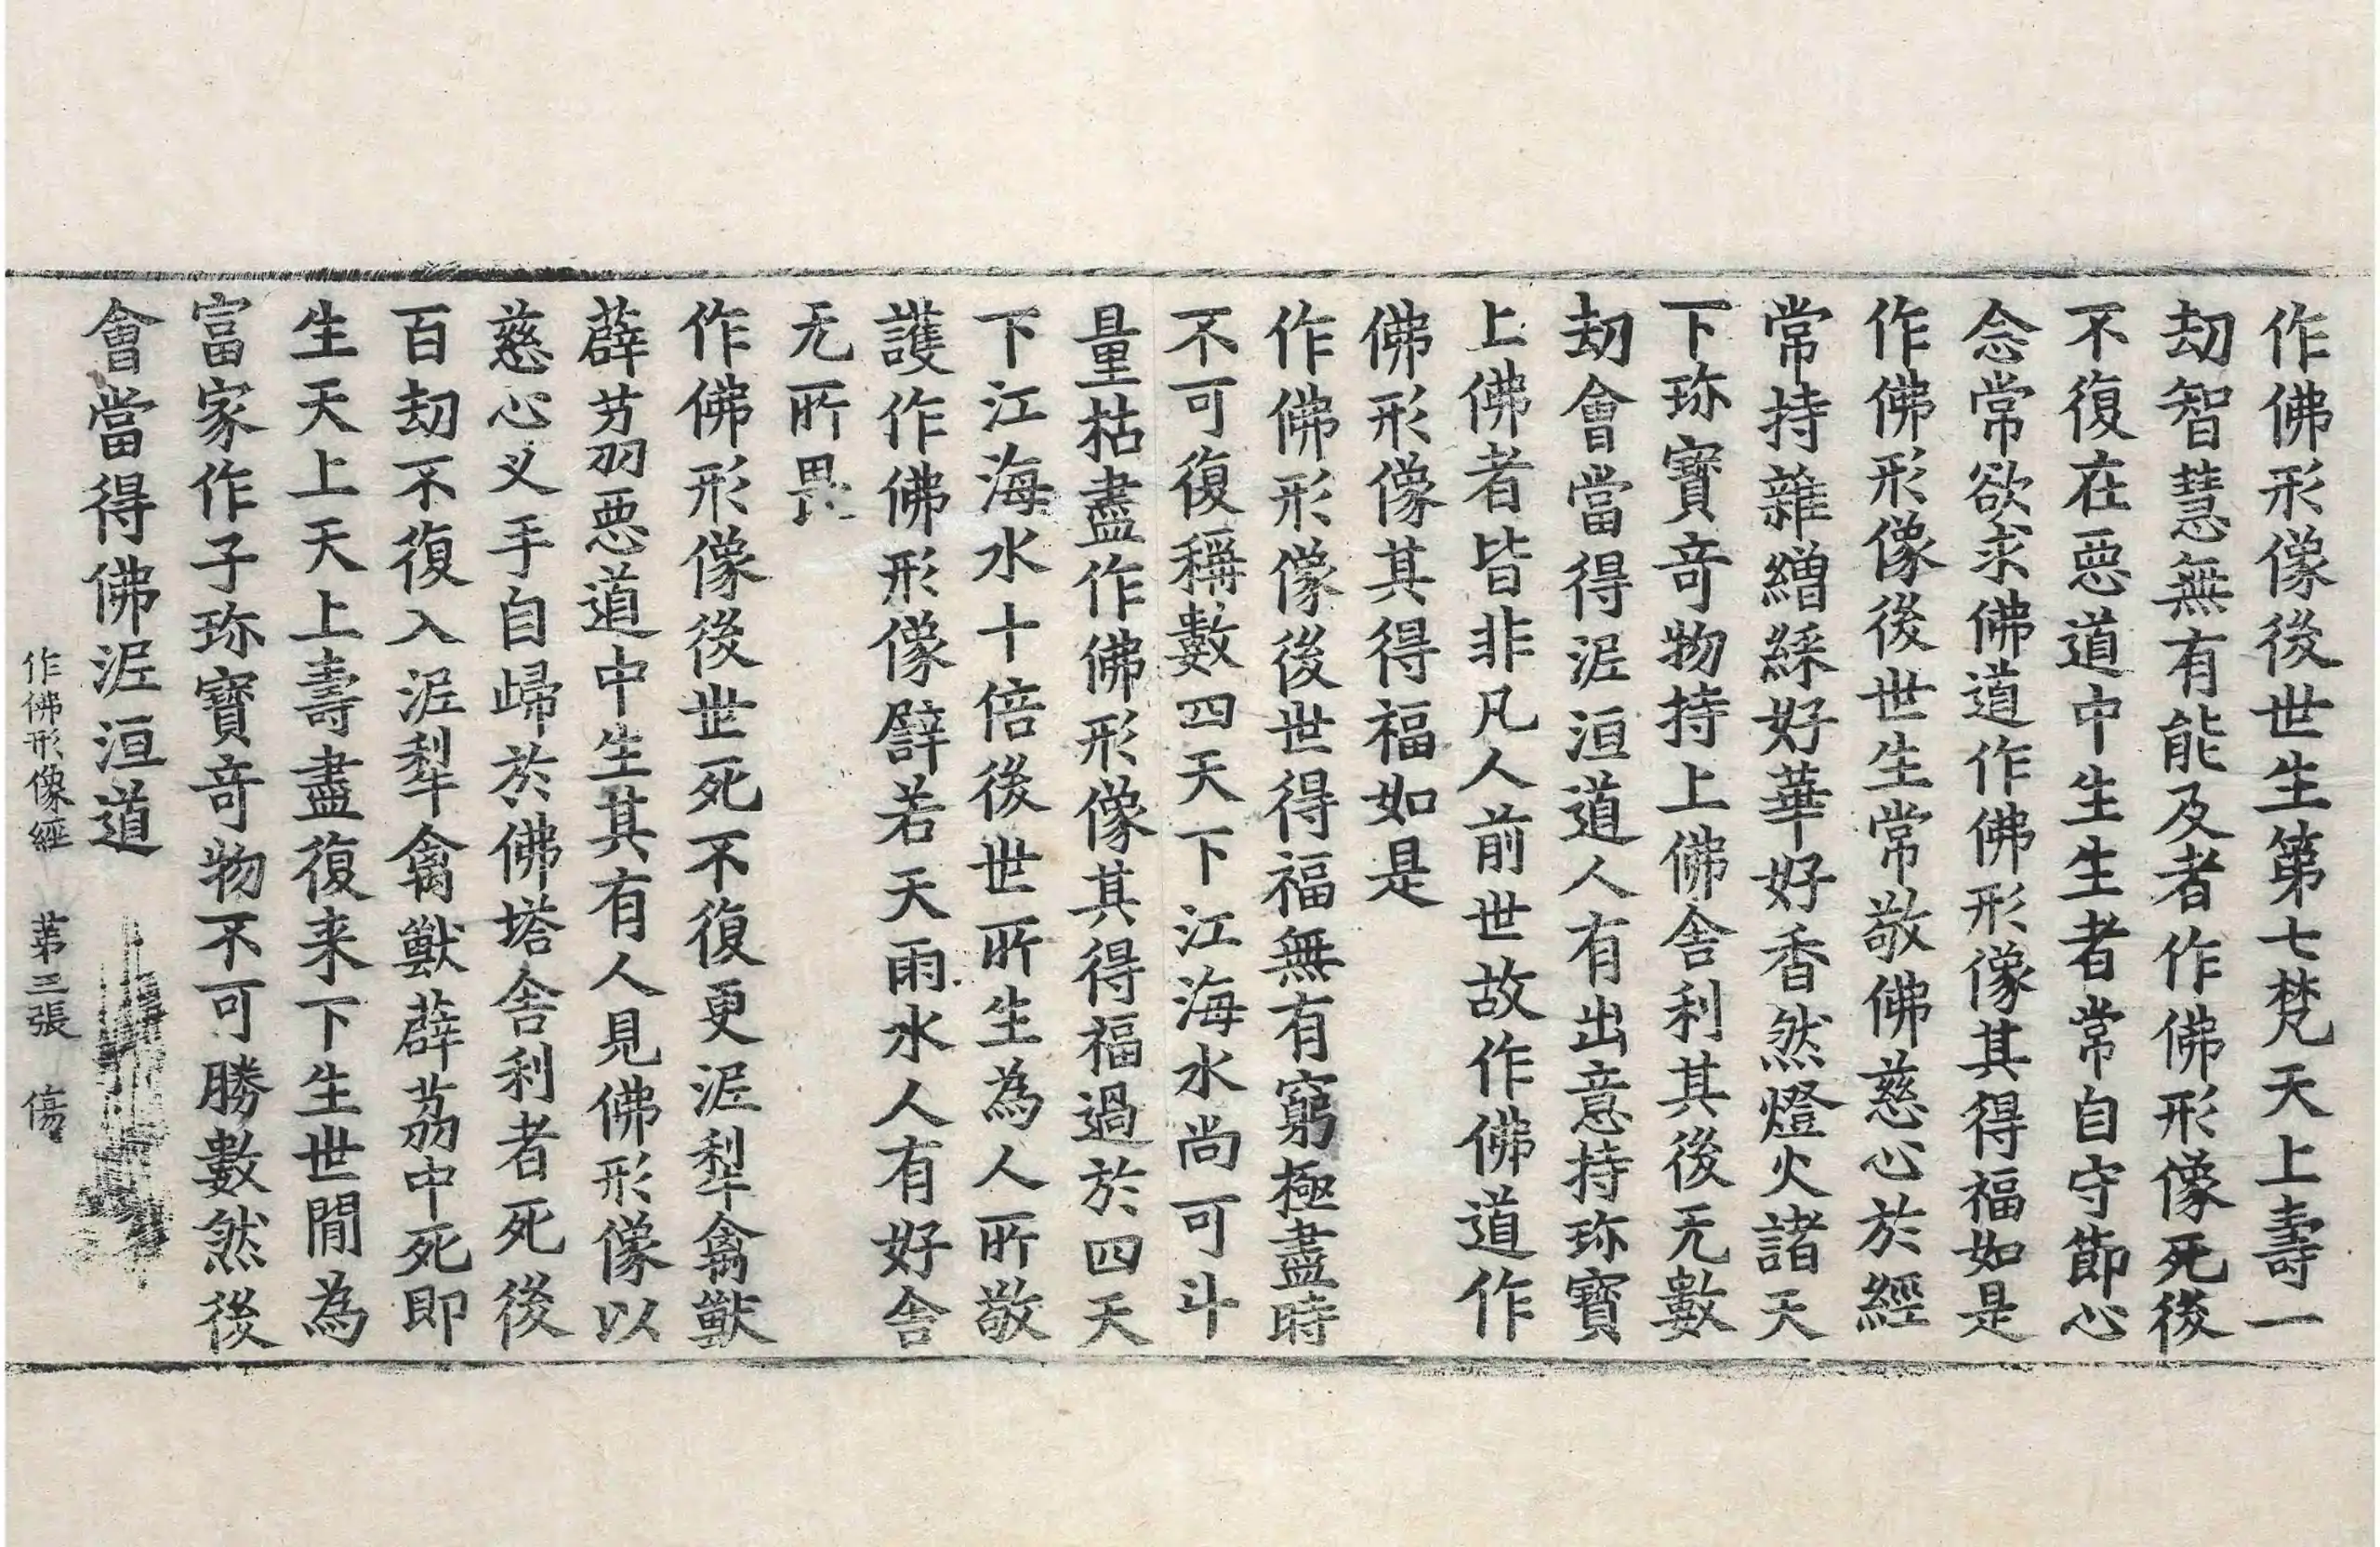 作佛形像後世生第七梵天上壽一
劫智慧無有能及者作佛形像死後
不復在惡道中生生者常自守節心
念常欲求佛道作佛形像其得福如是
作佛形像後世生常敬佛慈心於經
常持雜繒綵好華好香然燈火諸天
下珎寶竒物持上佛舍利其後无數
劫會當得泥洹道人有出意持珎寶
上佛者皆非凡人前世故作佛道作
佛形像其得福如是
作佛形像後世得福無有窮極盡時
不可復稱數四天下江海水尚可斗
量枯盡作佛形像其得福過於四天
下江海水十倍後世所生為人所敬
護作佛形像譬若天雨水人有好舍
无所畏
作佛形像後世死不復更泥犁禽獸
薜荔惡道中生其有人見佛形像以
慈心叉手自歸於佛塔舍利者死後
百劫不復入泥犁禽獸薜荔中死即
生天上天上壽盡復来下生世閒為
富家作子珎寶竒物不可勝數然後
會當得佛泥洹道
作佛形像經 第三張 傷